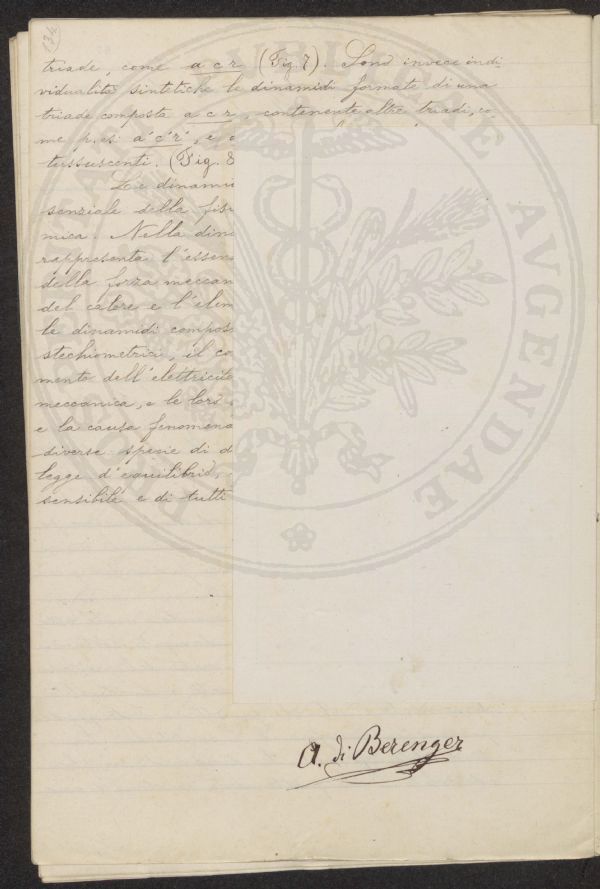 134
triade, come a c r (Fig. 7). Sono invece indi-
vidualità sintetiche le dinamidi formate di una
triade composta a c r, contenente altre triadi, co-
me p. es: a' c' r', e
tersuscenti. (Fig. 8
Le dinami
senziale della fisi
mica. Nella dina
rappresenta l'essen
della forza meccan
del calore e l'elem
le dinamidi compos
stechiometrici, il co
mento dell'elettricità
meccanica, e le loro
e la causa fenomena
diverse spezie di d
legge d'equilibrio,
sensibile e di tutti
A. di Berenger
AVGENDAE